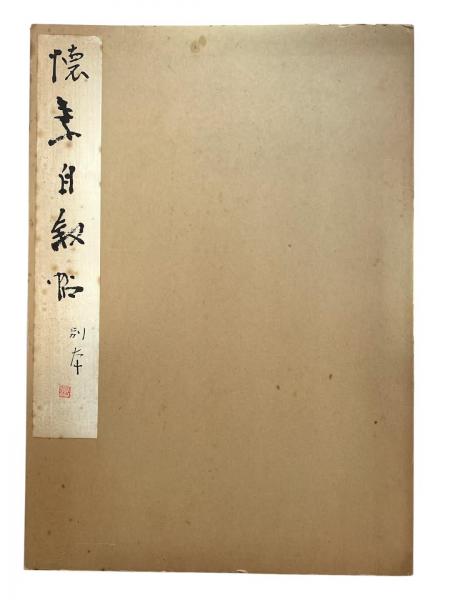 懐素自叙帖
別本